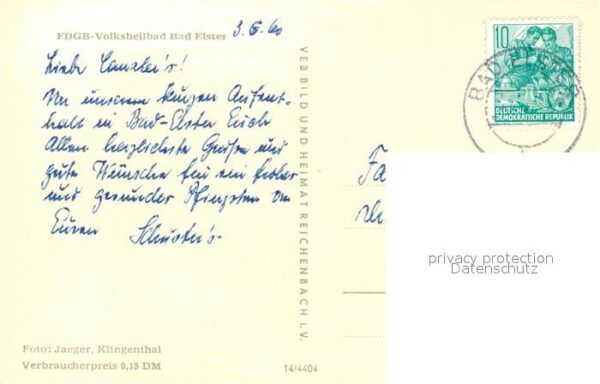 FDGB-Volksheilbad Bad Elster
3. VI. 60
Liebe Canzler's!
Von unserem kurzen Aufent-
halt in Bad-Elster Euch
Allen herzlichste Grüße und
gute Wünsche für ein frohes
und gesundes Pfingsten von
Euren Schuster's.
Foto: Jaeger, Klingenthal
Verbraucherpreis 0,15 DM
14/4404
VEB BILD UND HEIMAT REICHENBACH I. V.
10
DEUTSCHE
DEMOKRATISCHE REPUBLIK
BAD ELSTER
Fa
privacy protection
Datenschutz